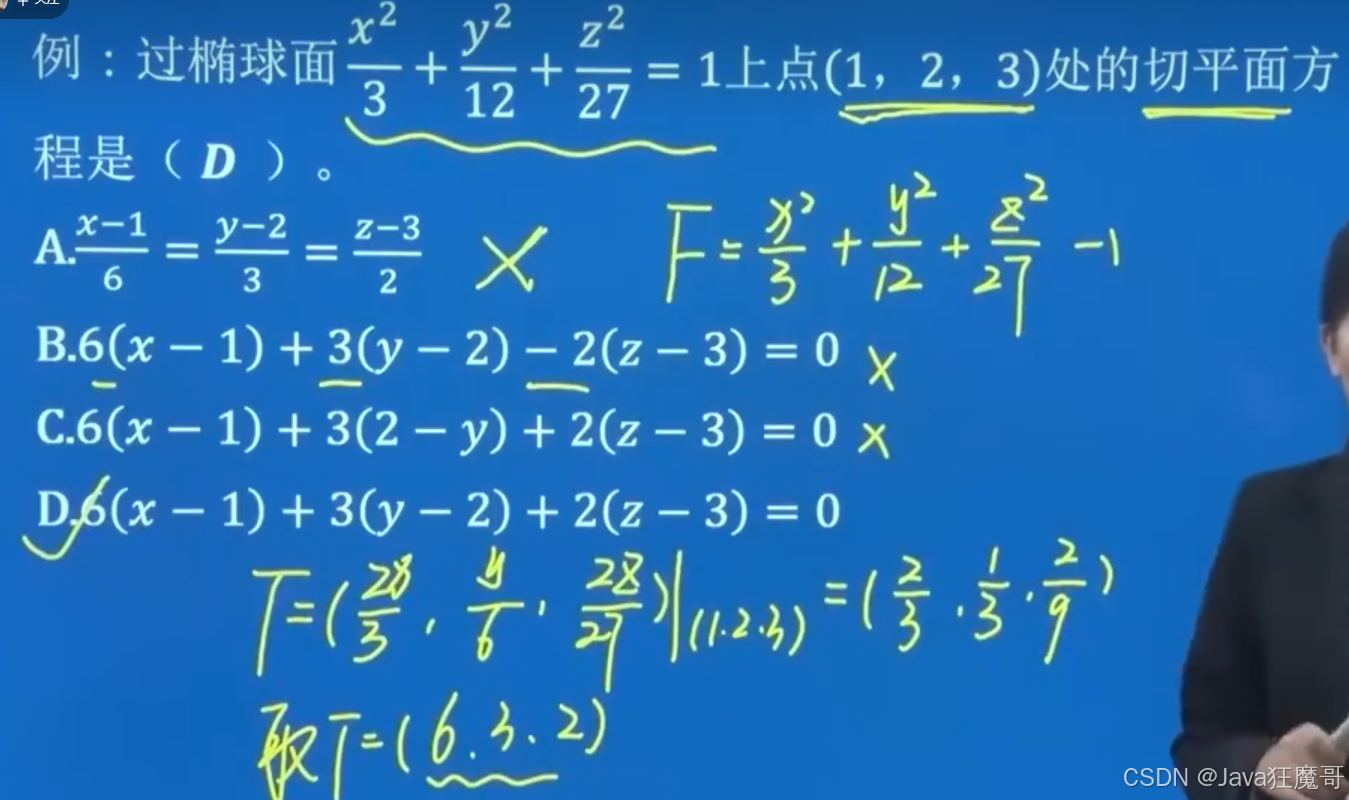 例：过椭球面 x²/3 + y²/12 + z²/27 = 1上点(1，2，3)处的切平面方
程是（ D ）。
A. (x−1)/6 = (y−2)/3 = (z−3)/2 ×
F = x²/3 + y²/12 + z²/27 − 1
B.6(x − 1) + 3(y − 2) − 2(z − 3) = 0 ×
C.6(x − 1) + 3(2 − y) + 2(z − 3) = 0 ×
D.6(x − 1) + 3(y − 2) + 2(z − 3) = 0
T = (2x/3, y/6, 2z/27)|(1.2.3) = (2/3, 1/3, 2/9)
取T=(6.3.2)
CSDN @Java狂魔哥